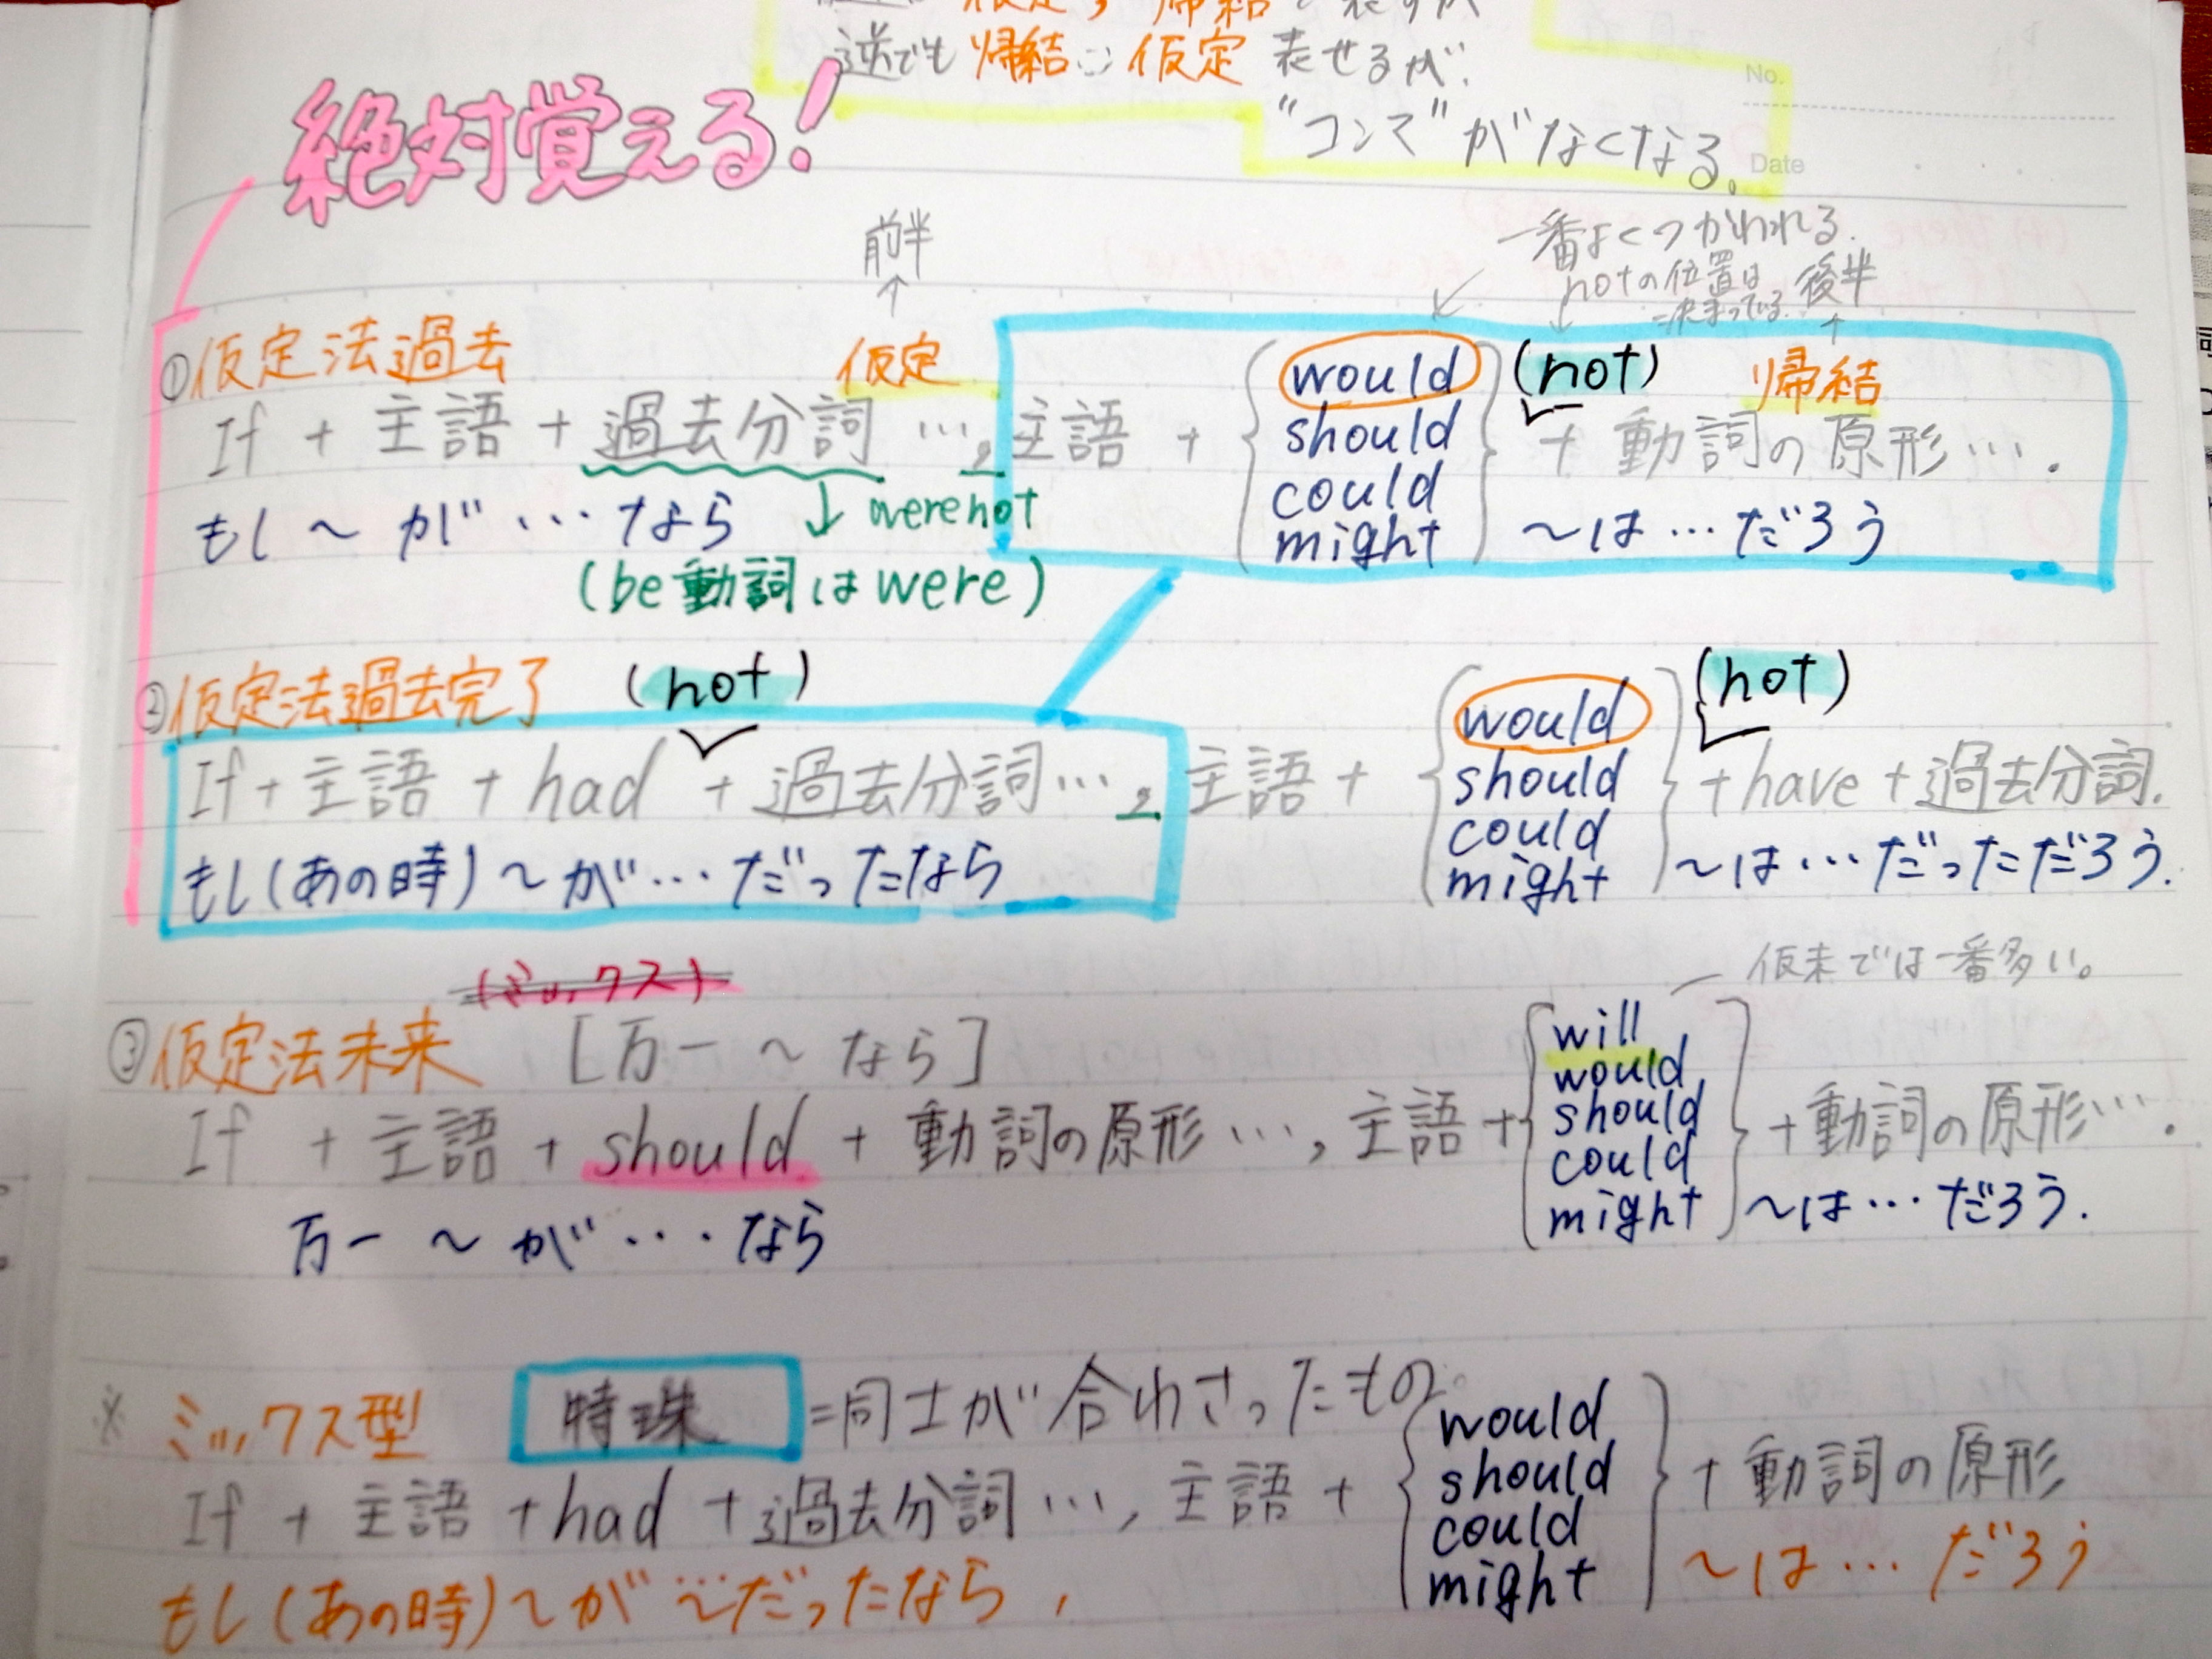 仮定, 帰結
逆でも 帰結 仮定 表せるが、
"コンマ"がなくなる。
No.
Date
絶対覚える!
前半
一番よくつかわれる.
notの位置は
決まっている.
後半
①仮定法過去
仮定
帰結
If + 主語 + 過去分詞 …, 主語 + { would should could might } (not) + 動詞の原形….
もし ~ が … なら
were not
~は…だろう
(be動詞は were)
②仮定法過去完了 (not) (not)
If + 主語 + had + 過去分詞…, 主語 + { would should could might } + have + 過去分詞.
もし(あの時)~が…だったなら
~は…だっただろう.
(ミックス)
仮未では一番多い。
③仮定法未来 [万一 ~ なら]
If + 主語 + should + 動詞の原形 …, 主語 + { will would should could might } + 動詞の原形….
万一 ~ が … なら
~は…だろう.
※ ミックス型 特珠 =同士が合わさったもの。
If + 主語 + had + 過去分詞 …, 主語 + { would should could might } + 動詞の原形
もし(あの時)~が…だったなら,
~は… だろう